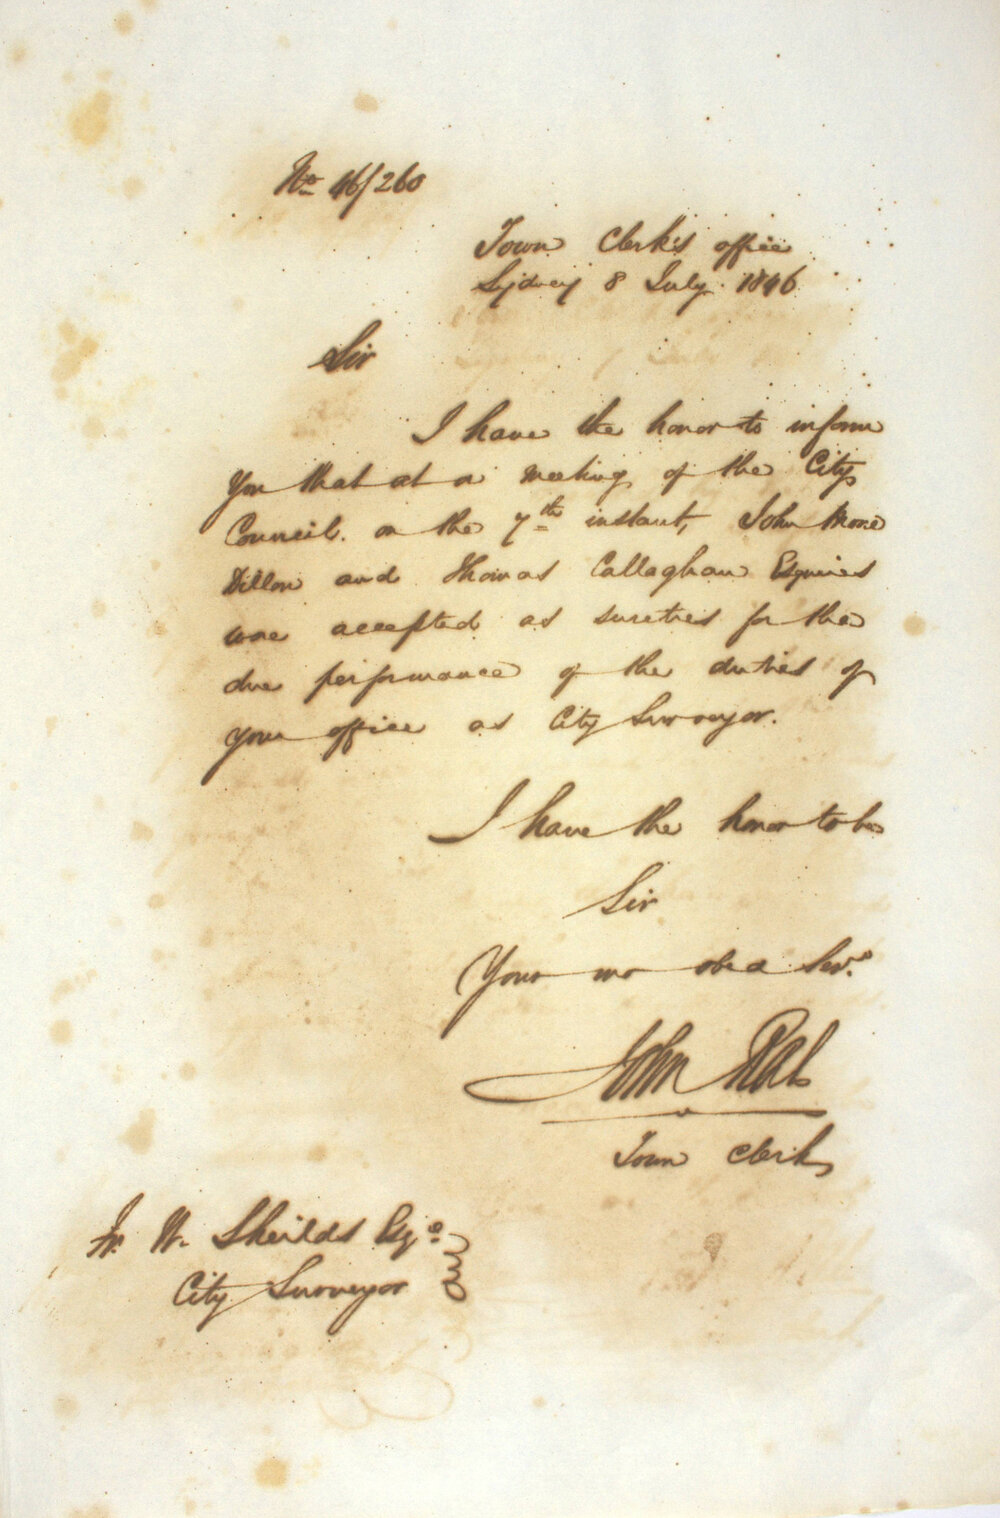 No 46/260
Town Clerk's office
Sydney 8 July 1846
Sir
I have the honor to inform
you that at a meeting of the City
Council on the 7th instant, John Moore
Dillon and Thomas Callaghan Esquires
were accepted as sureties for the
due performance of the duties of
your office as City Surveyor.
I have the honor to be
Sir
Your mo obed Serv.
John Rae
Town Clerk
W. Sheilds Esqe
City Surveyor